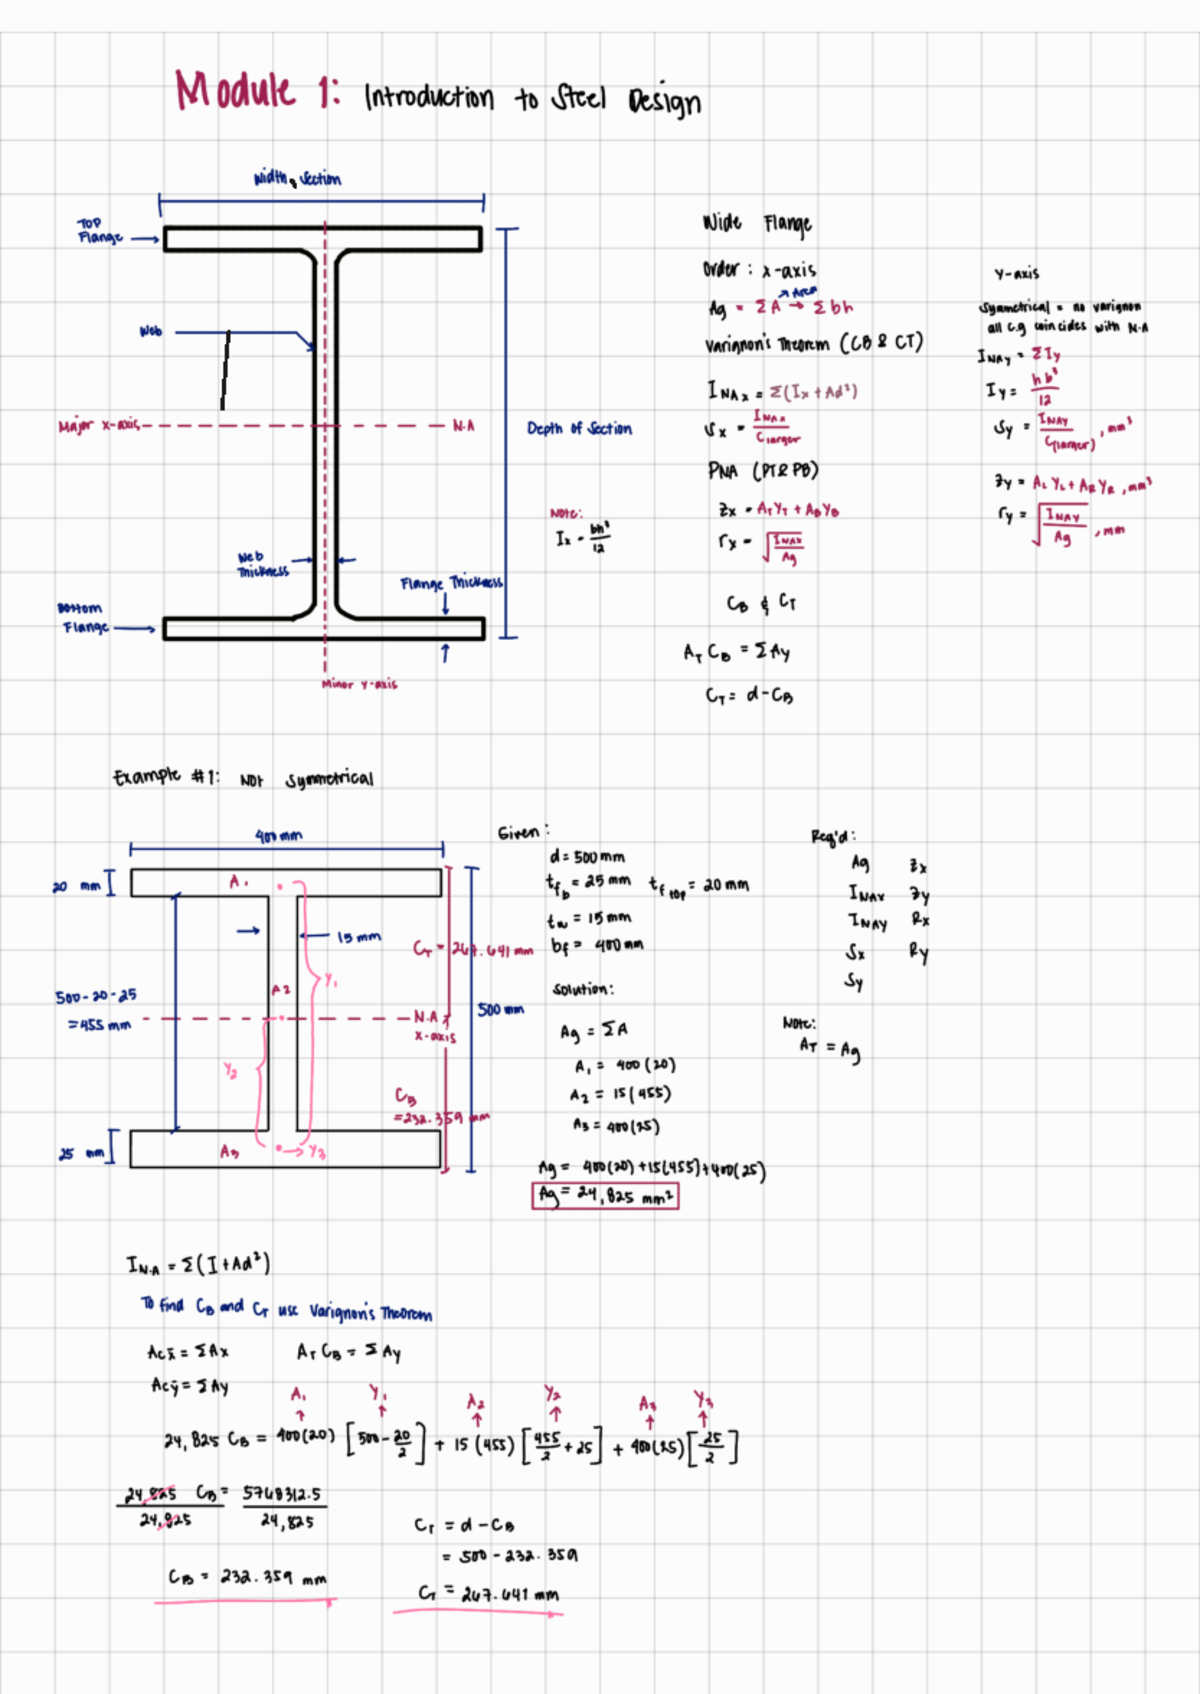 Module 1: Introduction to Steel Design
Width of Section
Top
Flange
Web
Major x-axis
N.A
Depth of Section
Web
Thickness
Flange Thickness
Bottom
Flange
Minor y-axis
Note:
Ix = bh³/12
Wide Flange
Order: x-axis
Area
Ag = ΣA → Σbh
Varignon's Theorem (CB & CT)
I NAx = Σ(Ix + Ad²)
Sx = I NAx / C larger
PNA (PT & PB)
Zx = ATYT + ABYB
rx = √(I NAx / Ag)
CB & CT
AT CB = ΣAy
CT = d - CB
Y-axis
Symmetrical = no varignon
all c.g coincides with N.A
I NAy = ΣIy
Iy = hb³/12
Sy = I NAY / C(larger), mm³
Zy = AL YL + AR YR, mm³
ry = √(I NAY / Ag), mm
Example #1: Not Symmetrical
400 mm
20 mm
A1
15 mm
CT = 267.641 mm
Y1
A2
500-20-25
= 455 mm
N.A
x-axis
500 mm
Y2
CB
= 232.359 mm
25 mm
A3
Y3
Given:
d = 500 mm
tfb = 25 mm tf top = 20 mm
tw = 15 mm
bf = 400 mm
Solution:
Ag = ΣA
A1 = 400(20)
A2 = 15(455)
A3 = 400(25)
Ag = 400(20) + 15(455) + 400(25)
Ag = 24,825 mm²
Req'd:
Ag Zx
I NAX Zy
I NAY Rx
Sx Ry
Sy
Note:
AT = Ag
I N.A = Σ(I + Ad²)
To find CB and CT use Varignon's Theorem
Acx̄ = ΣAx AT CB = ΣAy
Acȳ = ΣAy
A1 Y1 A2 Y2 A3 Y3
24,825 CB = 400(20) [500 - 20/2] + 15(455) [455/2 + 25] + 400(25) [25/2]
24,825 CB / 24,825 = 5768312.5 / 24,825
CB = 232.359 mm
CT = d - CB
= 500 - 232.359
CT = 267.641 mm